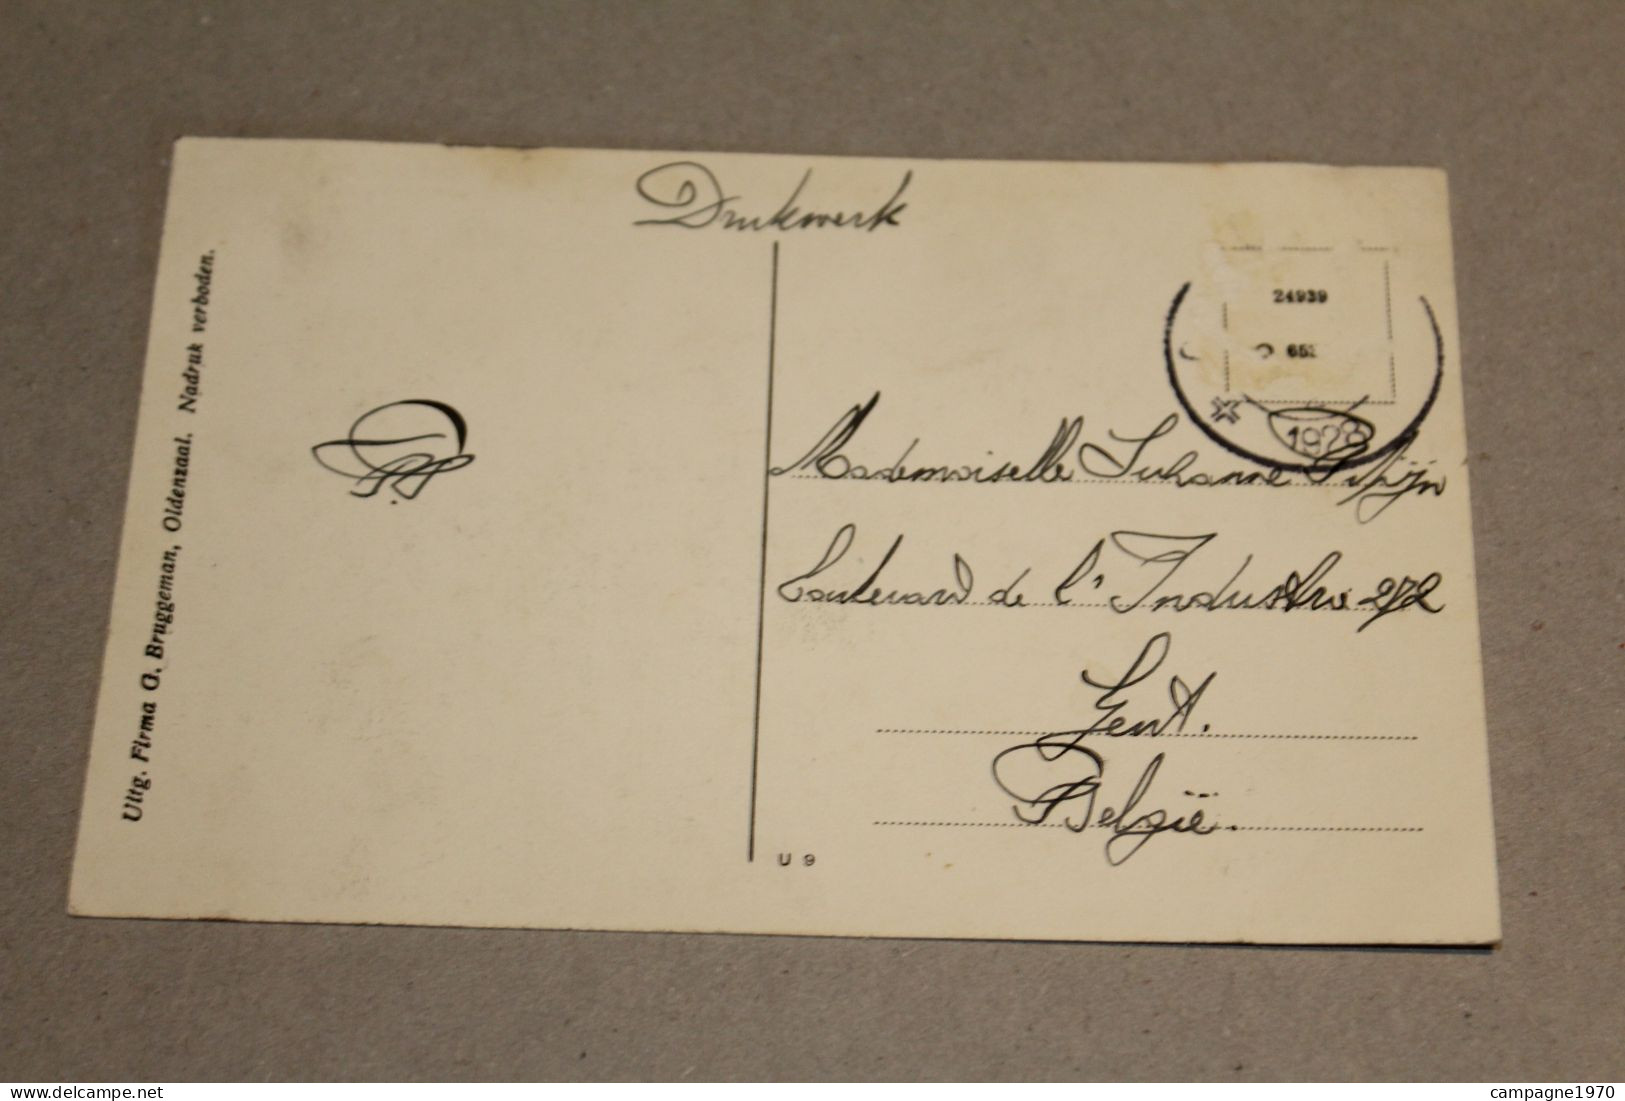 Drukwerk
24939
652
1928
Mademoiselle Suzanne
Boulevard de l'Industrie 272
Gent.
België.
U 9
Uitg. Firma G. Bruggeman, Oldenzaal. Nadruk verboden.
delcampe.net
campagne1970